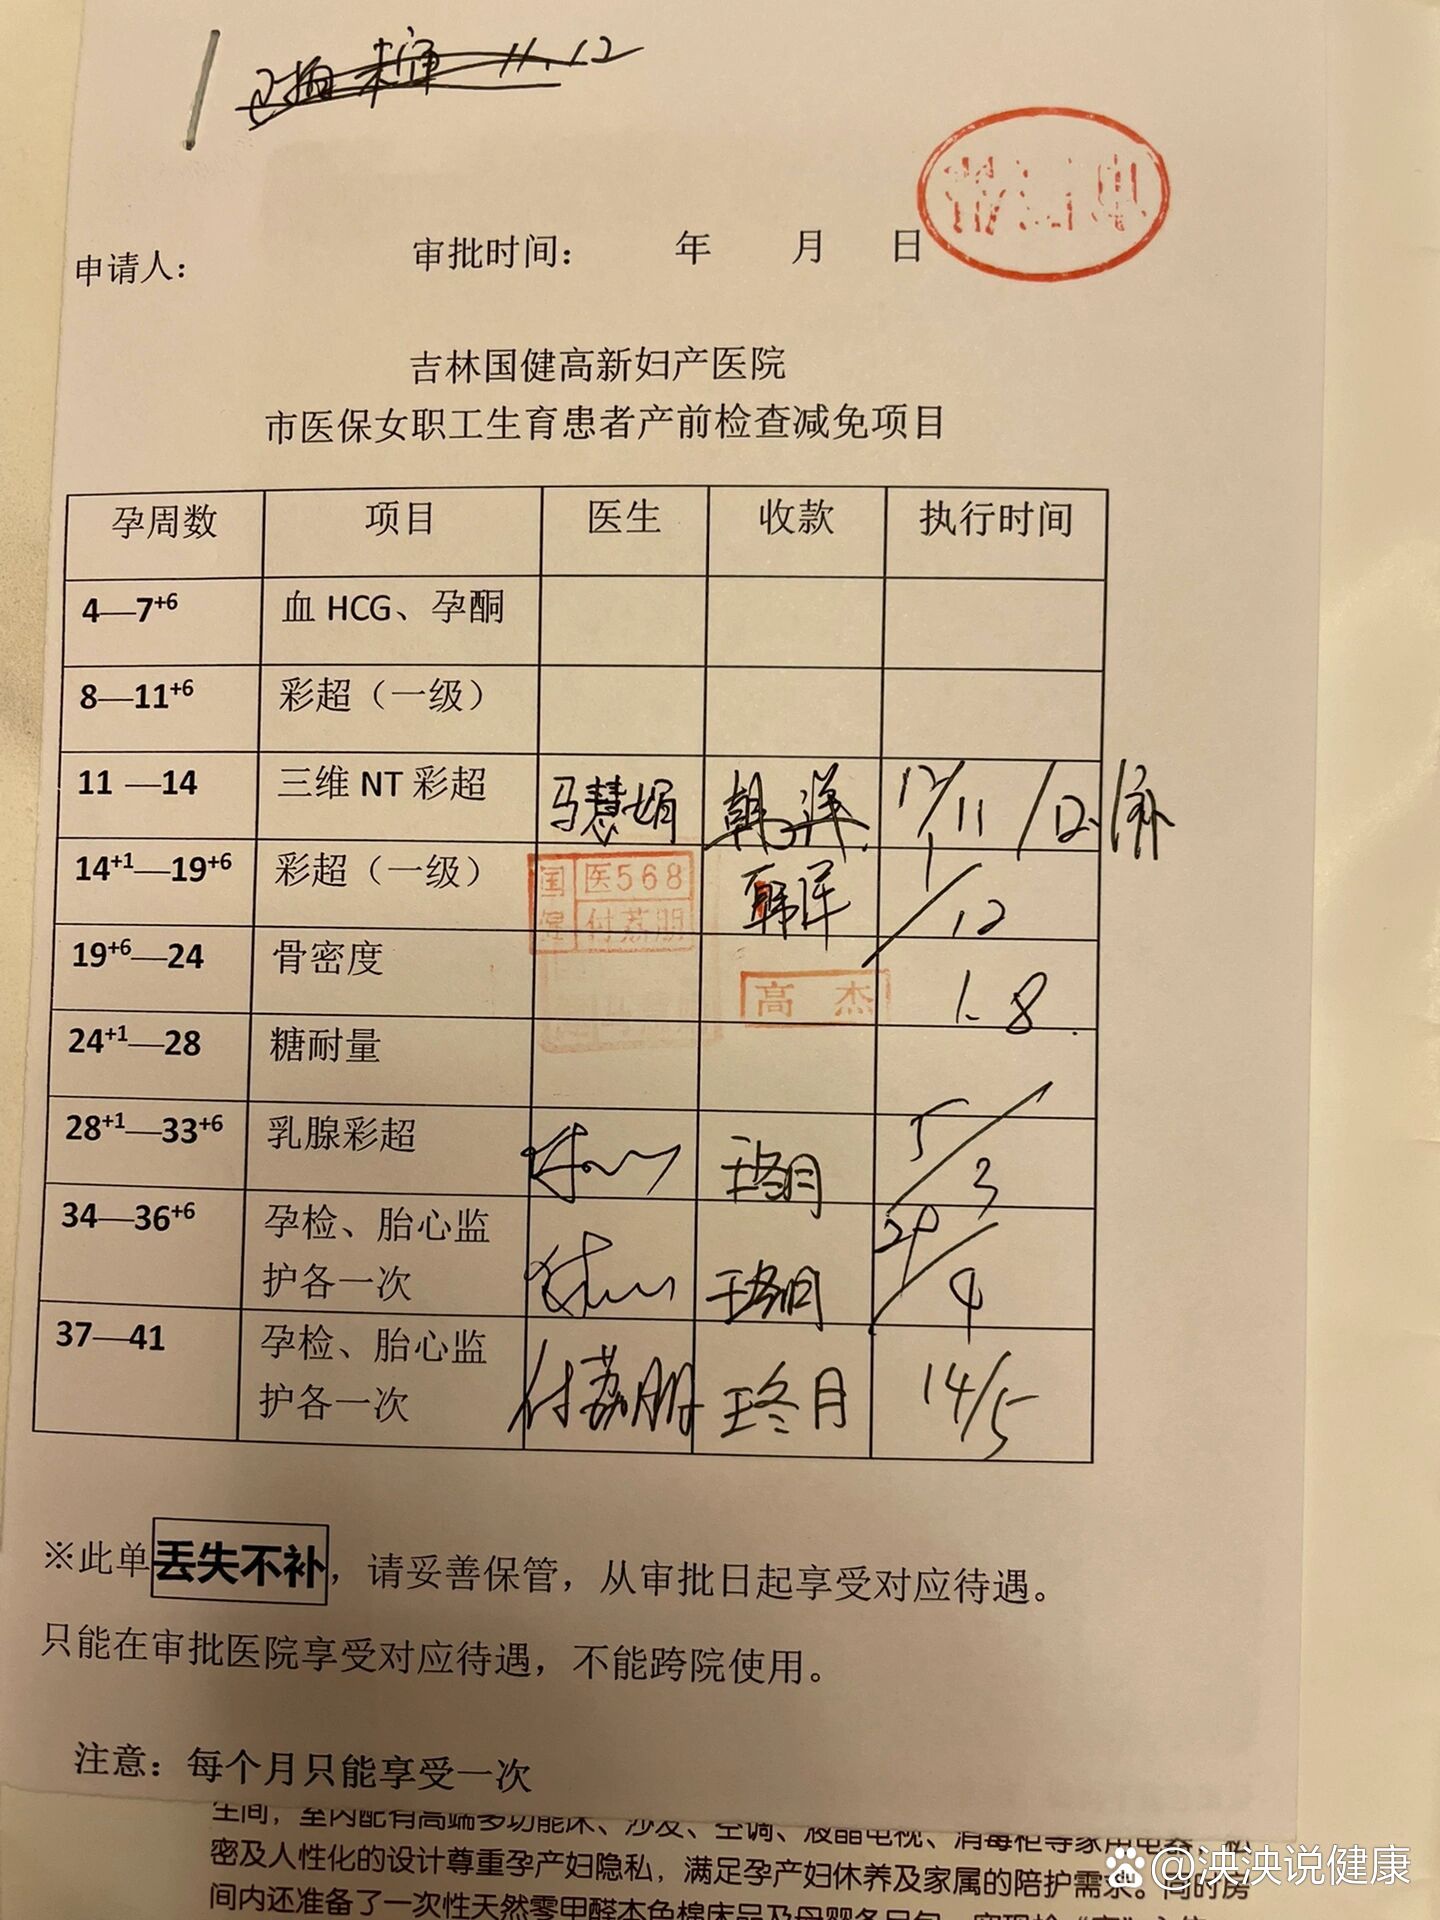 11.12
申请人: 审批时间: 年 月 日
吉林国健高新妇产医院
市医保女职工生育患者产前检查减免项目
孕周数 项目 医生 收款 执行时间
4—7+6 血 HCG、孕酮
8—11+6 彩超（一级）
11 —14 三维 NT 彩超 马慧娟 韩洋 12/11 /12.1补
14+1—19+6 彩超（一级） 国健 医568 付荔朋 韩洋 1/12
19+6—24 骨密度 高杰 1.8
24+1—28 糖耐量
28+1—33+6 乳腺彩超 王冬月 5/3
34—36+6 孕检、胎心监 王冬月 29/4
护各一次
37—41 孕检、胎心监 付荔朋 王冬月 14/5
护各一次
※此单丢失不补，请妥善保管，从审批日起享受对应待遇。
只能在审批医院享受对应待遇，不能跨院使用。
注意：每个月只能享受一次
生间，室内配有高端多功能床、沙发、空调、液晶电视、消毒柜等家用电器、私
密及人性化的设计尊重孕产妇隐私，满足孕产妇休养及家属的陪护需求。同时房
间内还准备了一次性天然零甲醛本色棉床品及母婴
@泱泱说健康